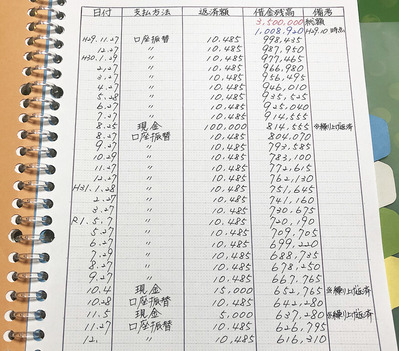 日付 支払方法 返済額 借金残高 備考
3,500,000 総額
1,008,920 H29.10 時点
H29.11.27 口座振替 10,485 998,435
12.27 〃 10,485 987,950
H30.1.29 〃 10,485 977,465
2.27 〃 10,485 966,980
3.27 〃 10,485 956,495
4.27 〃 10,485 946,010
5.28 〃 10,485 935,525
6.27 〃 10,485 925,040
7.27 〃 10,485 914,555
8.25 現金 100,000 814,555 ※繰り上げ返済
8.27 口座振替 10,485 804,070
9.27 〃 10,485 793,585
10.29 〃 10,485 783,100
11.27 〃 10,485 772,615
12.27 〃 10,485 762,130
H31.1.28 〃 10,485 751,645
2.27 〃 10,485 741,160
3.27 〃 10,485 730,675
R.1.5.7 〃 10,485 720,190
5.27 〃 10,485 709,705
6.27 〃 10,485 699,220
7.29 〃 10,485 688,735
8.27 〃 10,485 678,250
9.27 〃 10,485 667,765
10.4 現金 15,000 652,765 ※繰り上げ返済
10.28 口座振替 10,485 642,280
11.5 現金 5,000 637,280 ※繰り上げ返済
11.27 口座振替 10,485 626,795
12, 〃 10,485 616,310